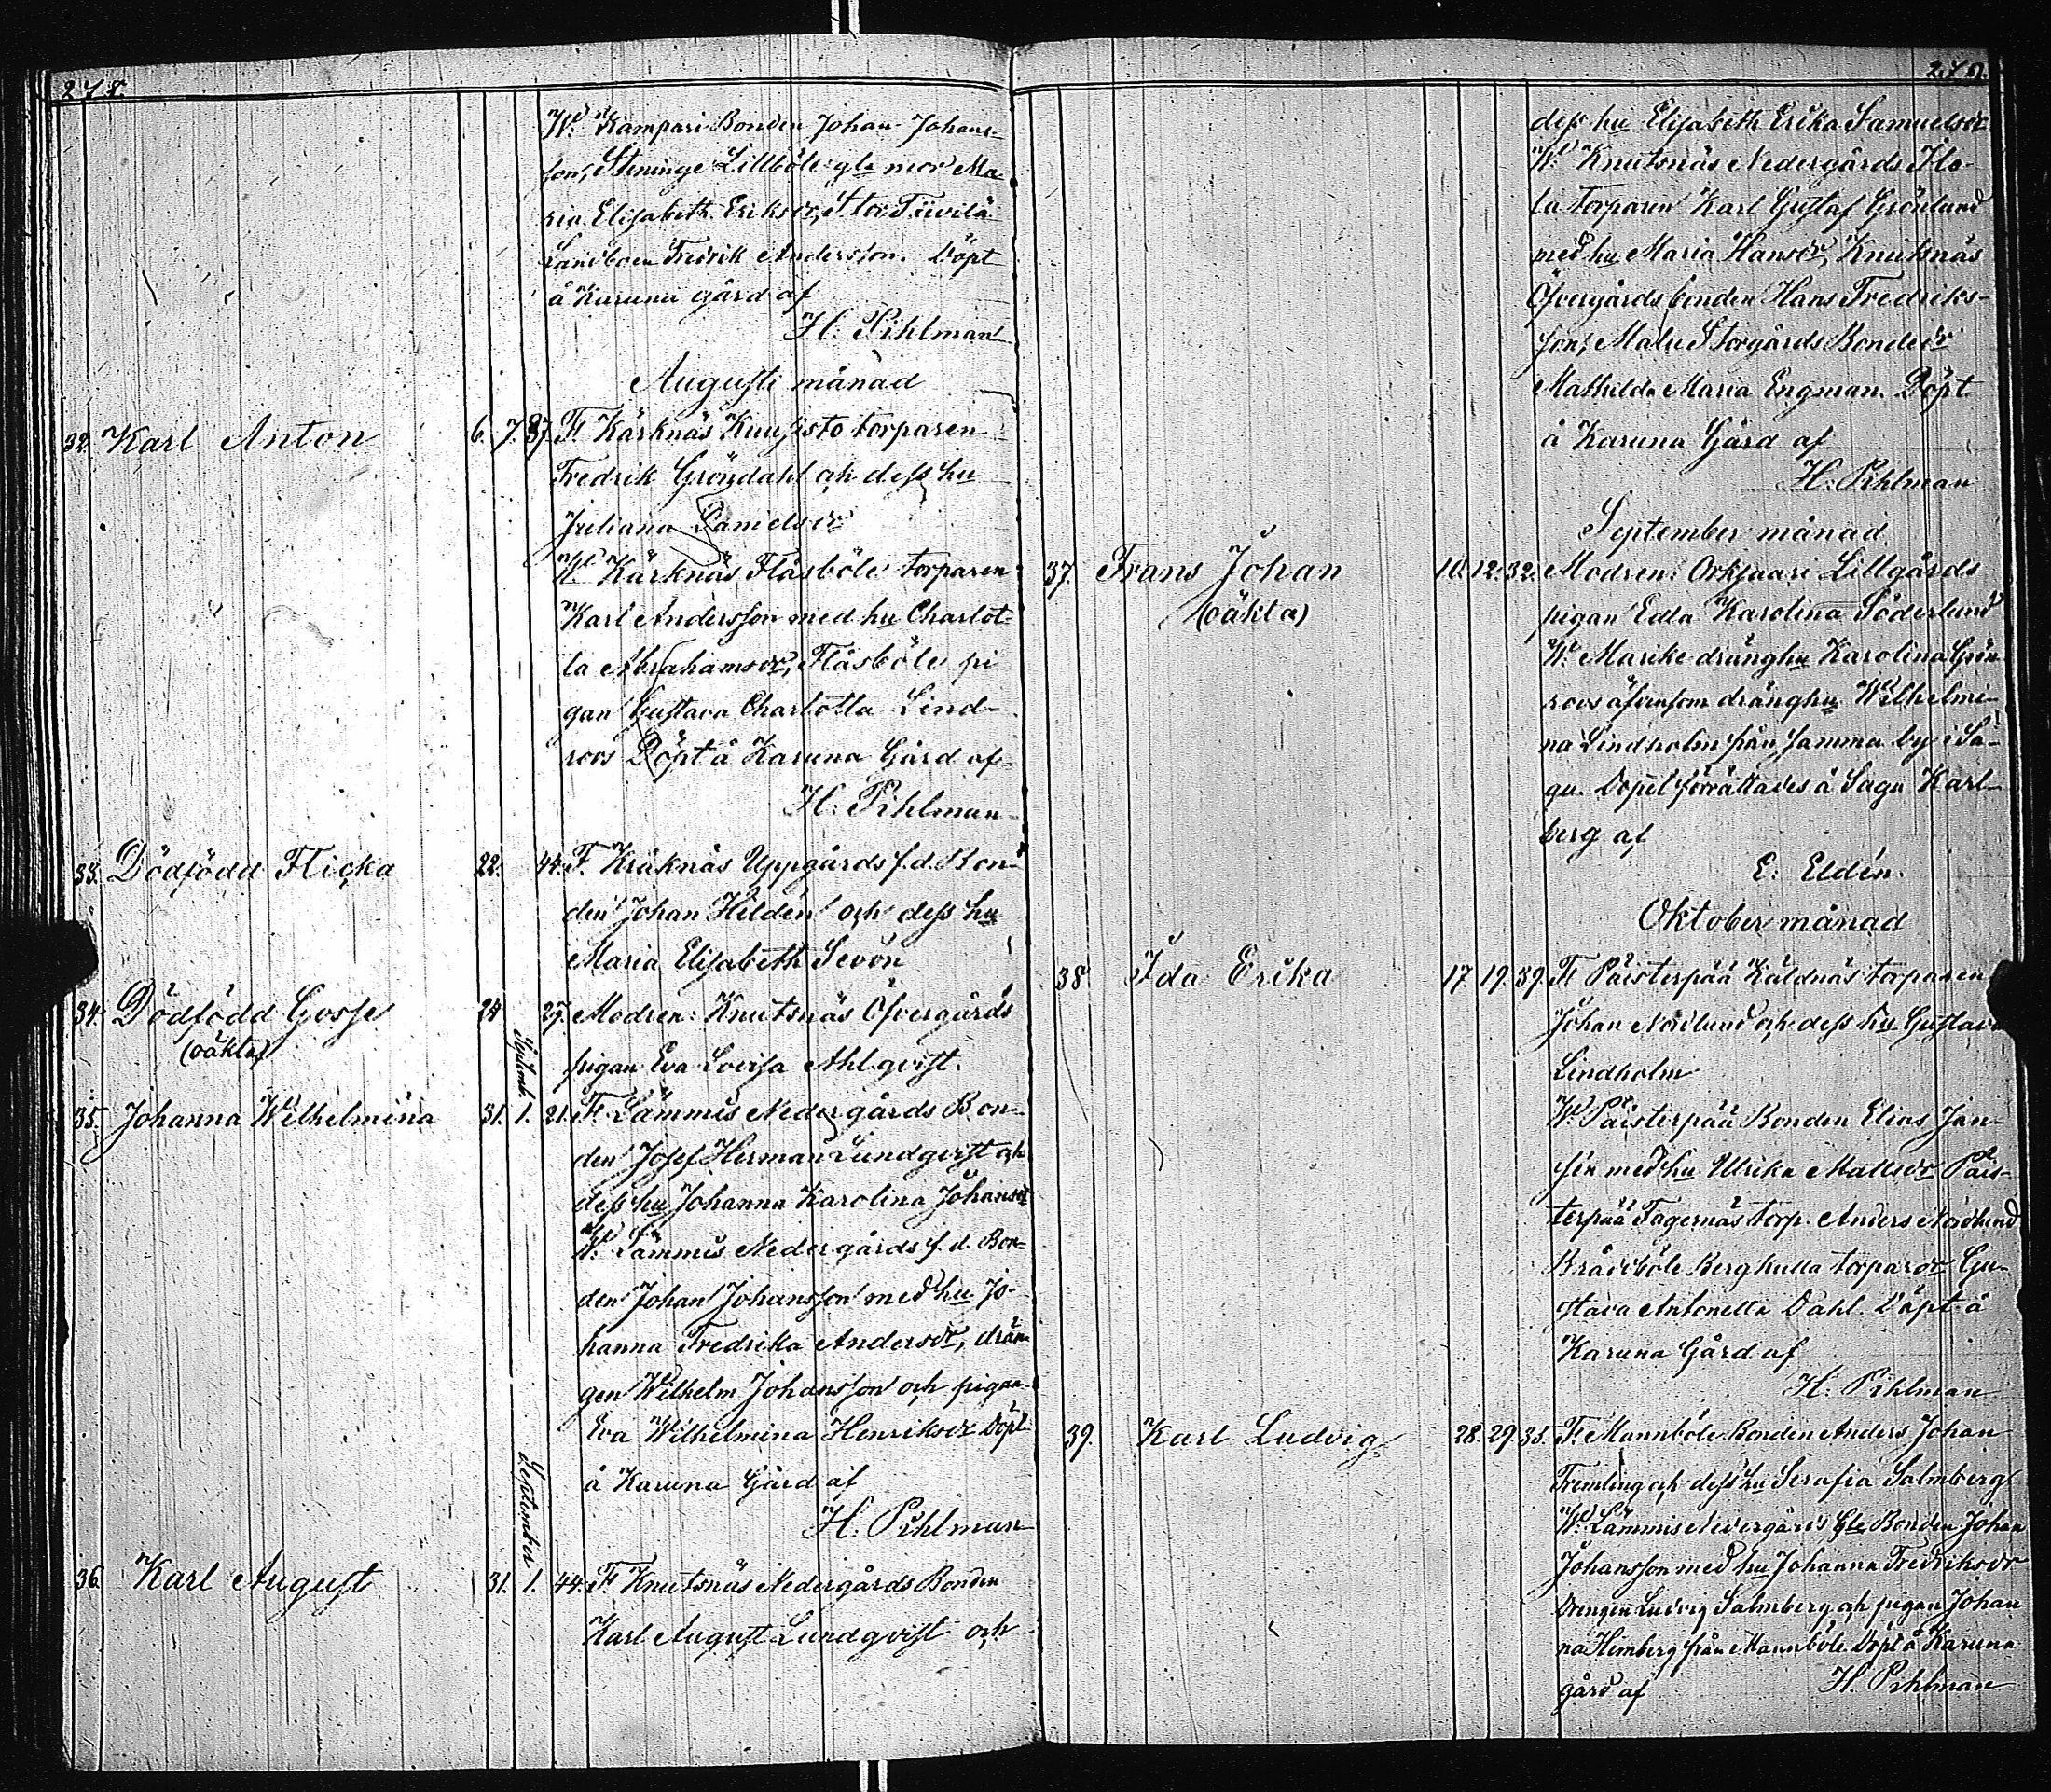 278.
W. Kampari Bonden Johan Johans-
son, Steninge Lillböle gle mor Ma-
ria Elisabeth Eriksdr, Stor Tiivilä
Landboen Fredrik Andersson. Döpt
å Karuna gård af
H. Pihlman
Augusti månad
32. Karl Anton 6. 7. 37. F. Kärknäs Kuusisto torparen
Fredrik Gröndahl och dess hu
Juliana Danielsdr
W. Kärknäs Fläsböle torparen
Karl Andersson med hu Charlot-
ta Abrahamsdr, Fläsböle pi
gan Gustava Charlotta Lind-
roos Döpt å Karuna Gård af
H. Pihlman
33. Dödfödd Flicka 22. 44. F. Kräknäs Uppgårds f.d. Bon-
den Johan Hildén och dess hu
Maria Elisabeth Sevón
34. Dödfödd Gosse 24 27. Modren: Knutsnäs Öfvergårds
(oäkta) pigan Eva Lovisa Ahlqvist.
35. Johanna Wilhelmina 31. Septemb. 1. 21. F. Lämmis Nedergårds Bon-
den Josef Herman Lundqvist och
dess hu Johanna Karolina Johansdr
W. Lämmis Nedergårds f.d. Bon-
den Johan Johansson med hu Jo-
hanna Fredrika Andersdr, drän-
gen Wilhelm Johansson och pigan
Eva Wilhelmina Henriksdr Döpt
å Karuna Gård af
H. Pihlman
36. Karl August 31. September 1. 44. F. Knutsnäs Nedergårds Bonden
Karl August Lundqvist och
279.
dess hu Elisabeth Erika Samuelsdr
W. Knutsnäs Nedergårds Ho-
la torparen Karl Gustaf Grönlund
med hu Maria Hansdr, Knutsnäs
Öfvergårds bonden Hans Fredriks-
son, Malu Storgårds Bondedr
Mathilda Maria Engman. Döpt
å Karuna Gård af
H. Pihlman
September månad
37. Frans Johan 10. 12. 32. Modren: Orksaari Lillgårds
(oäkta) pigan Edla Karolina Söderlund
W. Marike dränghu Karolina Grön-
roos äfvensom dränghu Wilhelmi-
na Lindholm från samma by i Sa-
gu. Dopet förrättades å Sagu Karl-
berg af
E. Eldén.
Oktober månad
38. Ida Erika 17. 19. 39. F. Päisterpää Käldnäs torparen
Johan Nordlund och dess hu Gustava
Lindholm
W. Päisterpää Bonden Elias Jan-
sén med hu Ulrika Mattsdr Päis-
terpää Fagernäs torp. Anders Nordlund
Brådböle Bergkulla torpardr Gu-
stava Antonetta Dahl. Döpt å
Karuna Gård af
H. Pihlman
39. Karl Ludvig 28. 29. 35. F. Mannböle Bonden Anders Johan
Fremling och dess hu Serafia Salmberg
W. Lämmis Nedergårds Gle Bonden Johan
Johansson med hu Johanna Fredriksdr
Drengen Ludvig Salmberg och pigan Johan
na Himberg från Mannböle. Döpt å Karuna
gård af H. Pihlman